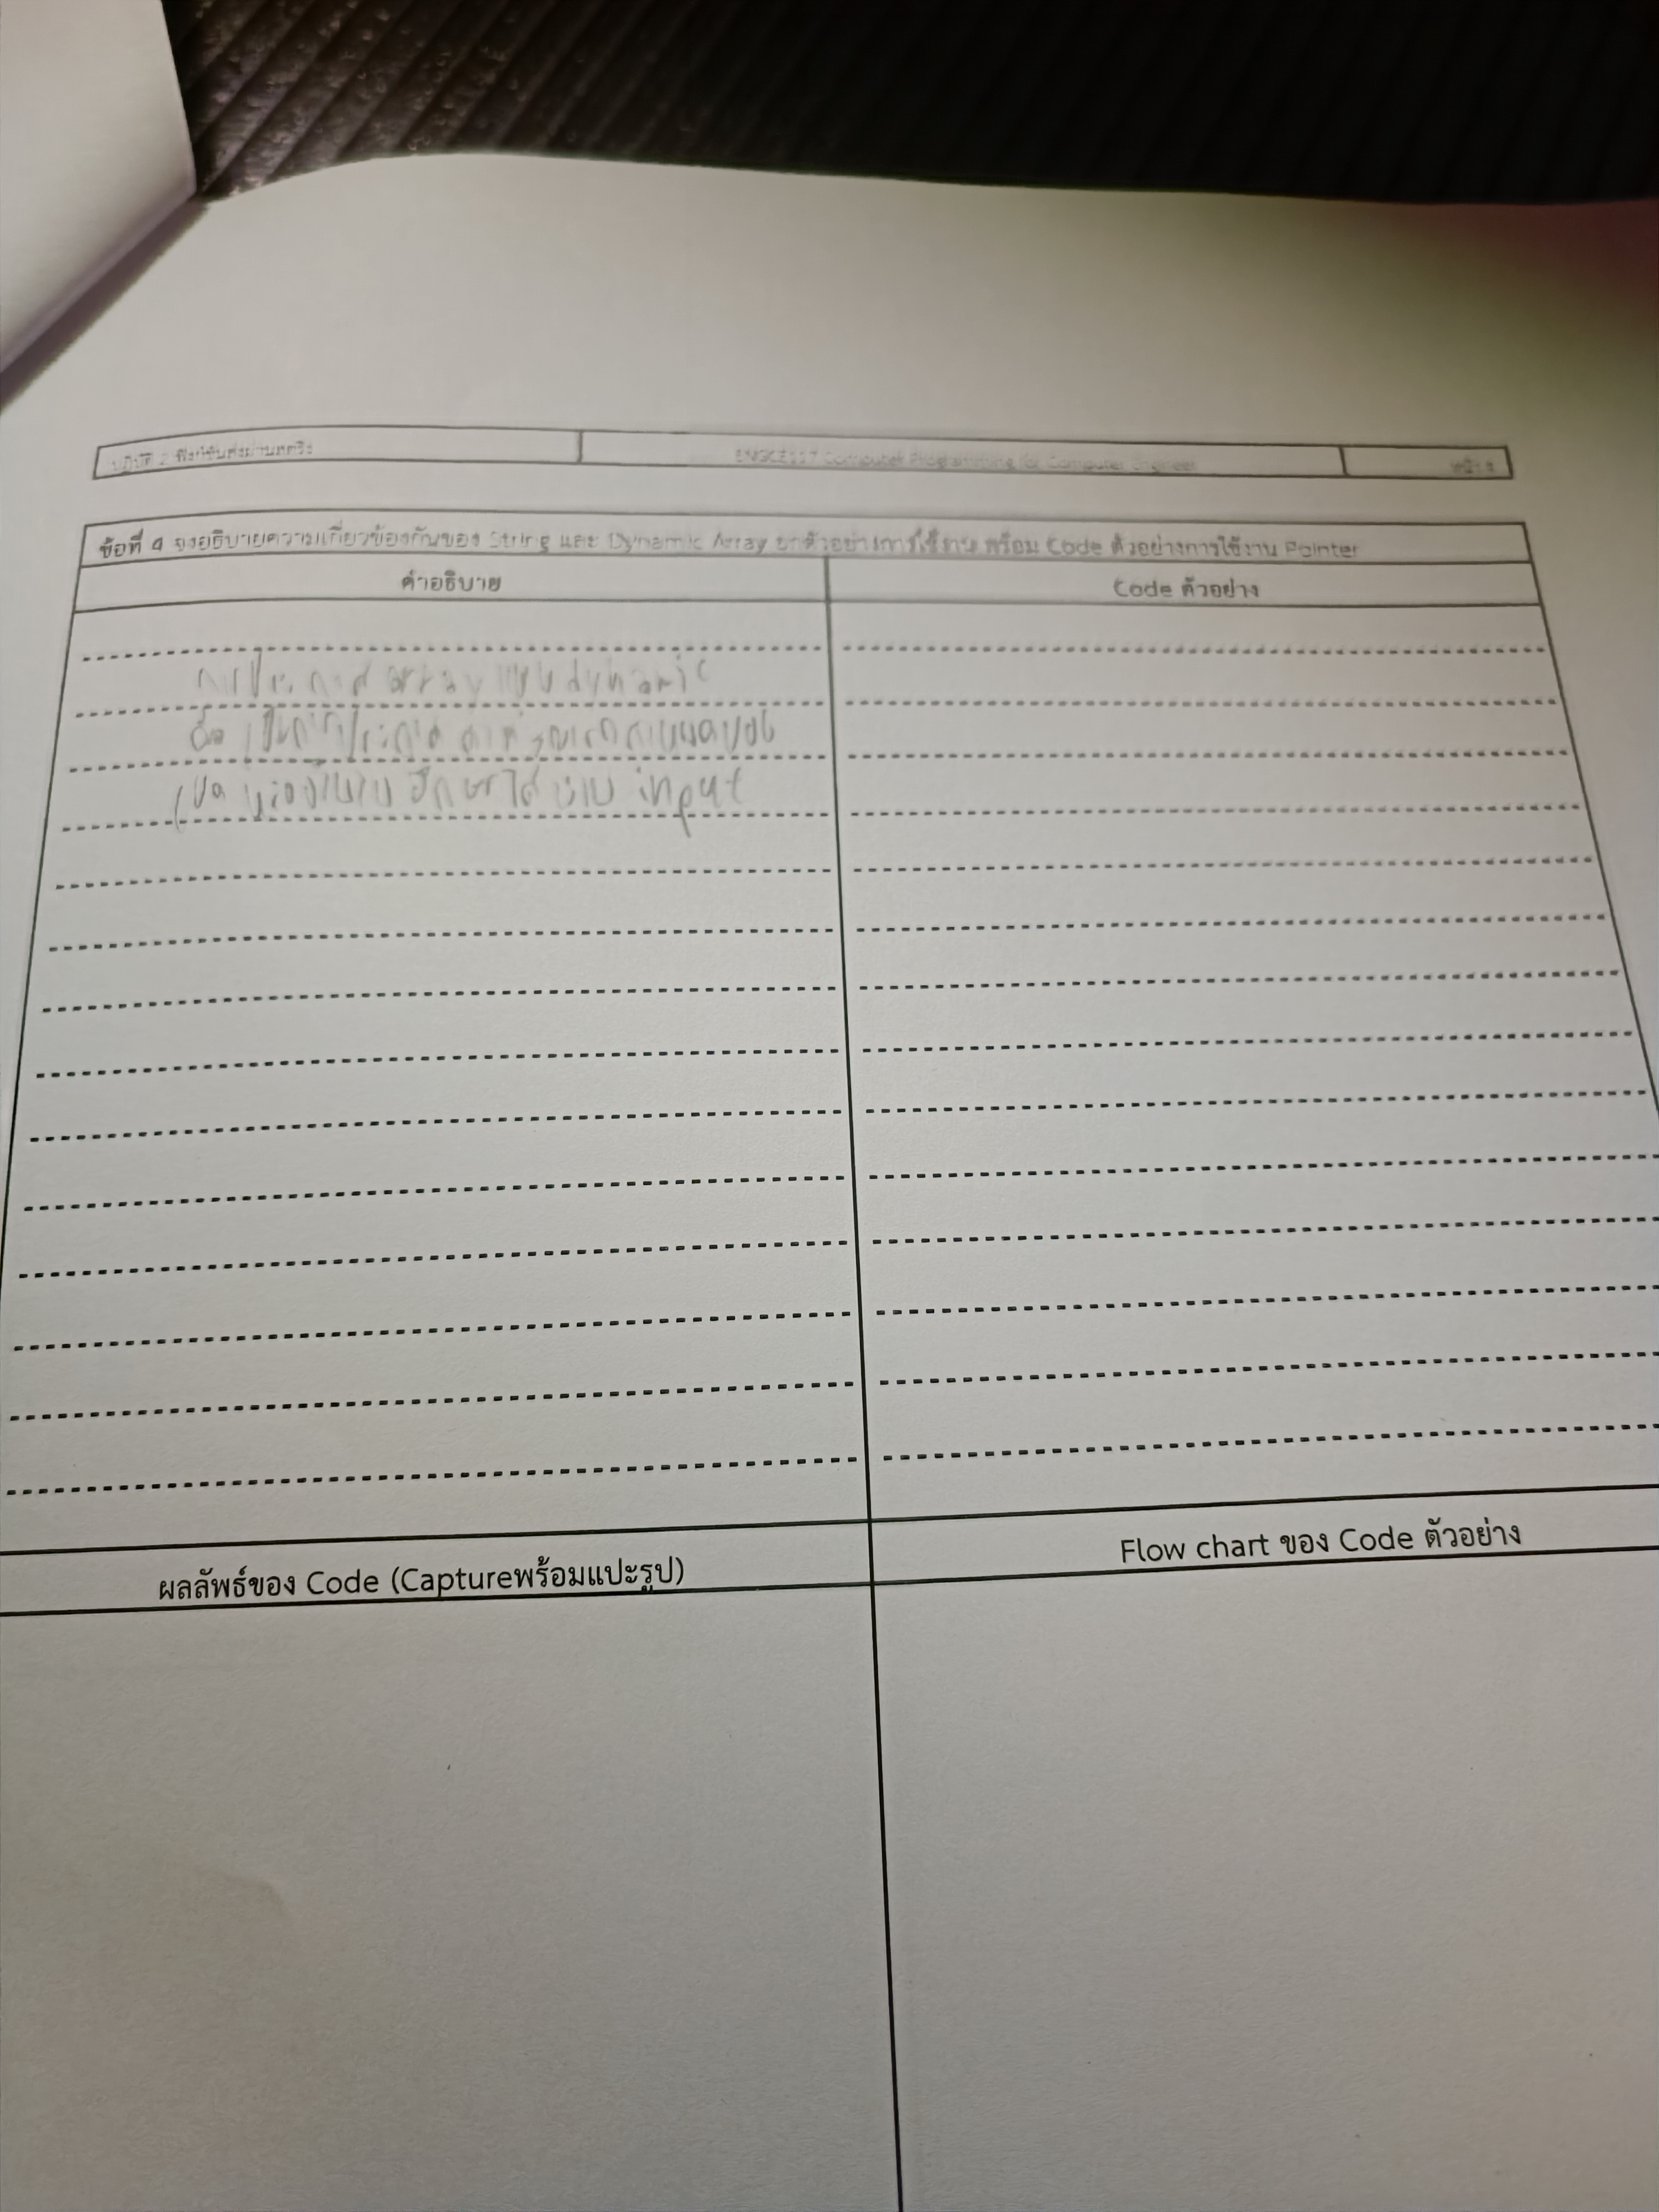 ฟังก์ชันส่งผ่านสตริง
ENGCE117 Computer Programming for Computer Engineer
ข้อที่ 4 จงอธิบายความเกี่ยวข้องกันของ String และ Dynamic Array ยกตัวอย่างการใช้งาน พร้อม Code ตัวอย่างการใช้งาน Pointer
คำอธิบาย
Code ตัวอย่าง
การประกาศ array แบบ dynamic
คือ เป็นการประกาศ
input
ผลลัพธ์ของ Code (Captureพร้อมแปะรูป)
Flow chart ของ Code ตัวอย่าง